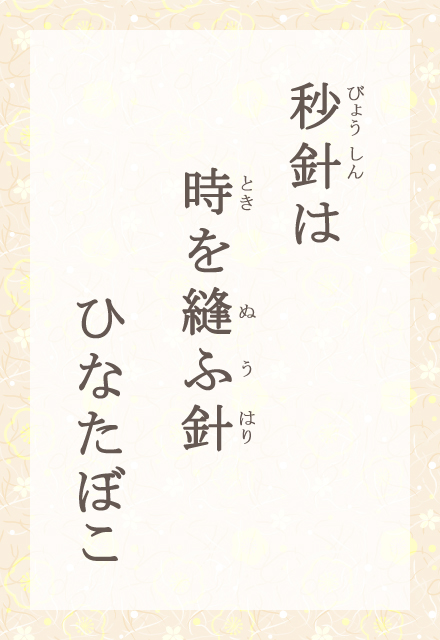 秒針は
びょうしん
時を縫ふ針
とき ぬ う はり
ひなたぼこ